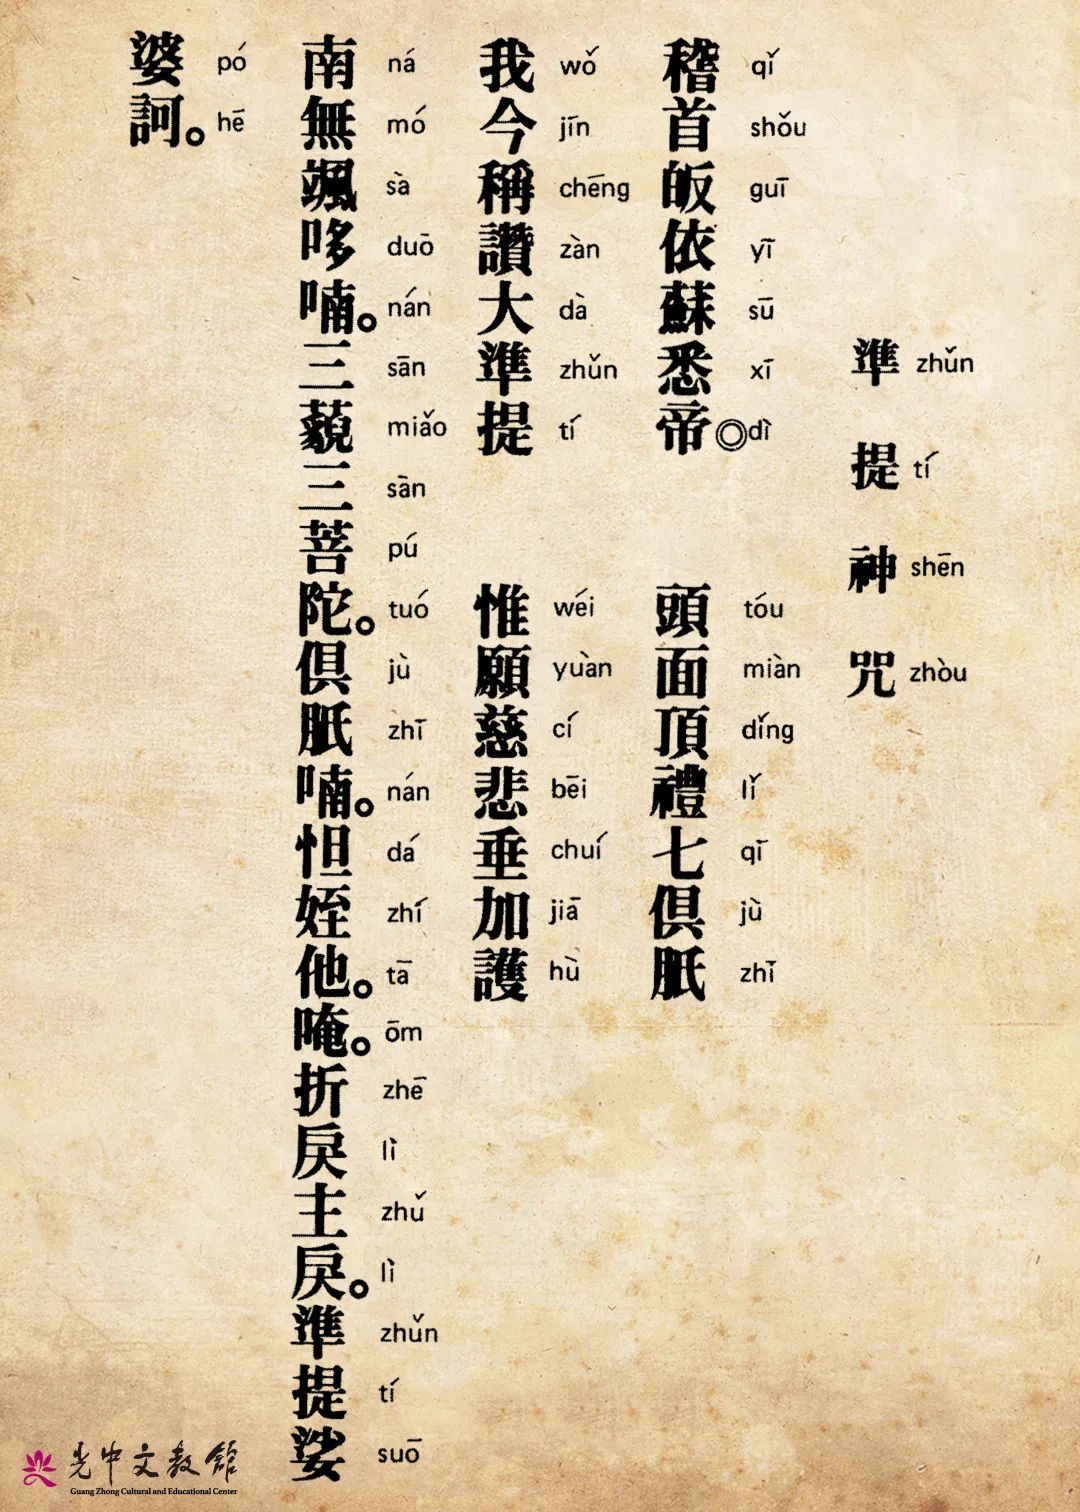 準 zhǔn 提 tí 神 shēn 咒 zhòu
稽 qǐ 首 shǒu 皈 guī 依 yī 蘇 sū 悉 xī 帝◎ dì 頭 tóu 面 miàn 頂 dǐng 禮 lǐ 七 qī 俱 jù 胝 zhī
我 wǒ 今 jīn 稱 chēng 讚 zàn 大 dà 準 zhǔn 提 tí 惟 wéi 願 yuàn 慈 cí 悲 bēi 垂 chuí 加 jiā 護 hù
南 ná 無 mó 颯 sà 哆 duō 喃。 nán 三 sān 藐 miǎo 三 sàn 菩 pú 陀。 tuó 俱 jù 胝 zhī 喃。 nán 怛 dá 姪 zhí 他。 tā 唵。 ōm 折 zhē 戾 lì 主 zhǔ 戾。 lì 準 zhǔn 提 tí 娑 suō
婆 pó 訶。 hē
光中文教館
Guang Zhong Cultural and Educational Center